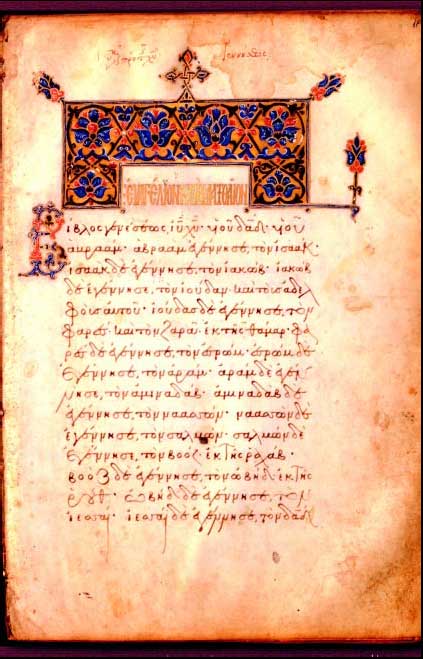 ΕΥΑΓΓΕΛΙΟΝ ΚΑΤΑ ΜΑΤΘΑΙΟΝ
Βίβλος γενέσεως ἰῦ χῦ υἱοῦ δαδ υἱοῦ
ἀβραάμ· ἀβραὰμ ἐγέννησε τὸν ἰσαάκ·
ἰσαὰκ δὲ ἐγέννησε τὸν ἰακώβ· ἰακὼβ
δὲ ἐγέννησε τὸν ἰούδαν καὶ τοὺς ἀδελ
φοὺς αὐτοῦ· ἰούδας δὲ ἐγέννησε τὸν
φαρὲς καὶ τὸν ζαρὰ ἐκ τῆς θάμαρ· φα
ρὲς δὲ ἐγέννησε τὸν ἐσρώμ· ἐσρὼμ δὲ
ἐγέννησε τὸν ἀράμ· ἀρὰμ δὲ ἐγέν
νησε τὸν ἀμιναδάβ· ἀμιναδὰβ δὲ
ἐγέννησε τὸν ναασσών· ναασσὼν δὲ
ἐγέννησε τὸν σαλμών· σαλμὼν δὲ
ἐγέννησε τὸν βοὸζ ἐκ τῆς ῥαχάβ·
βοὸζ δὲ ἐγέννησε τὸν ὠβὴδ ἐκ τῆς
ῥούθ· ὠβὴδ δὲ ἐγέννησε τὸν
ἰεσσαί· ἰεσσαὶ δὲ ἐγέννησε τὸν δαδ